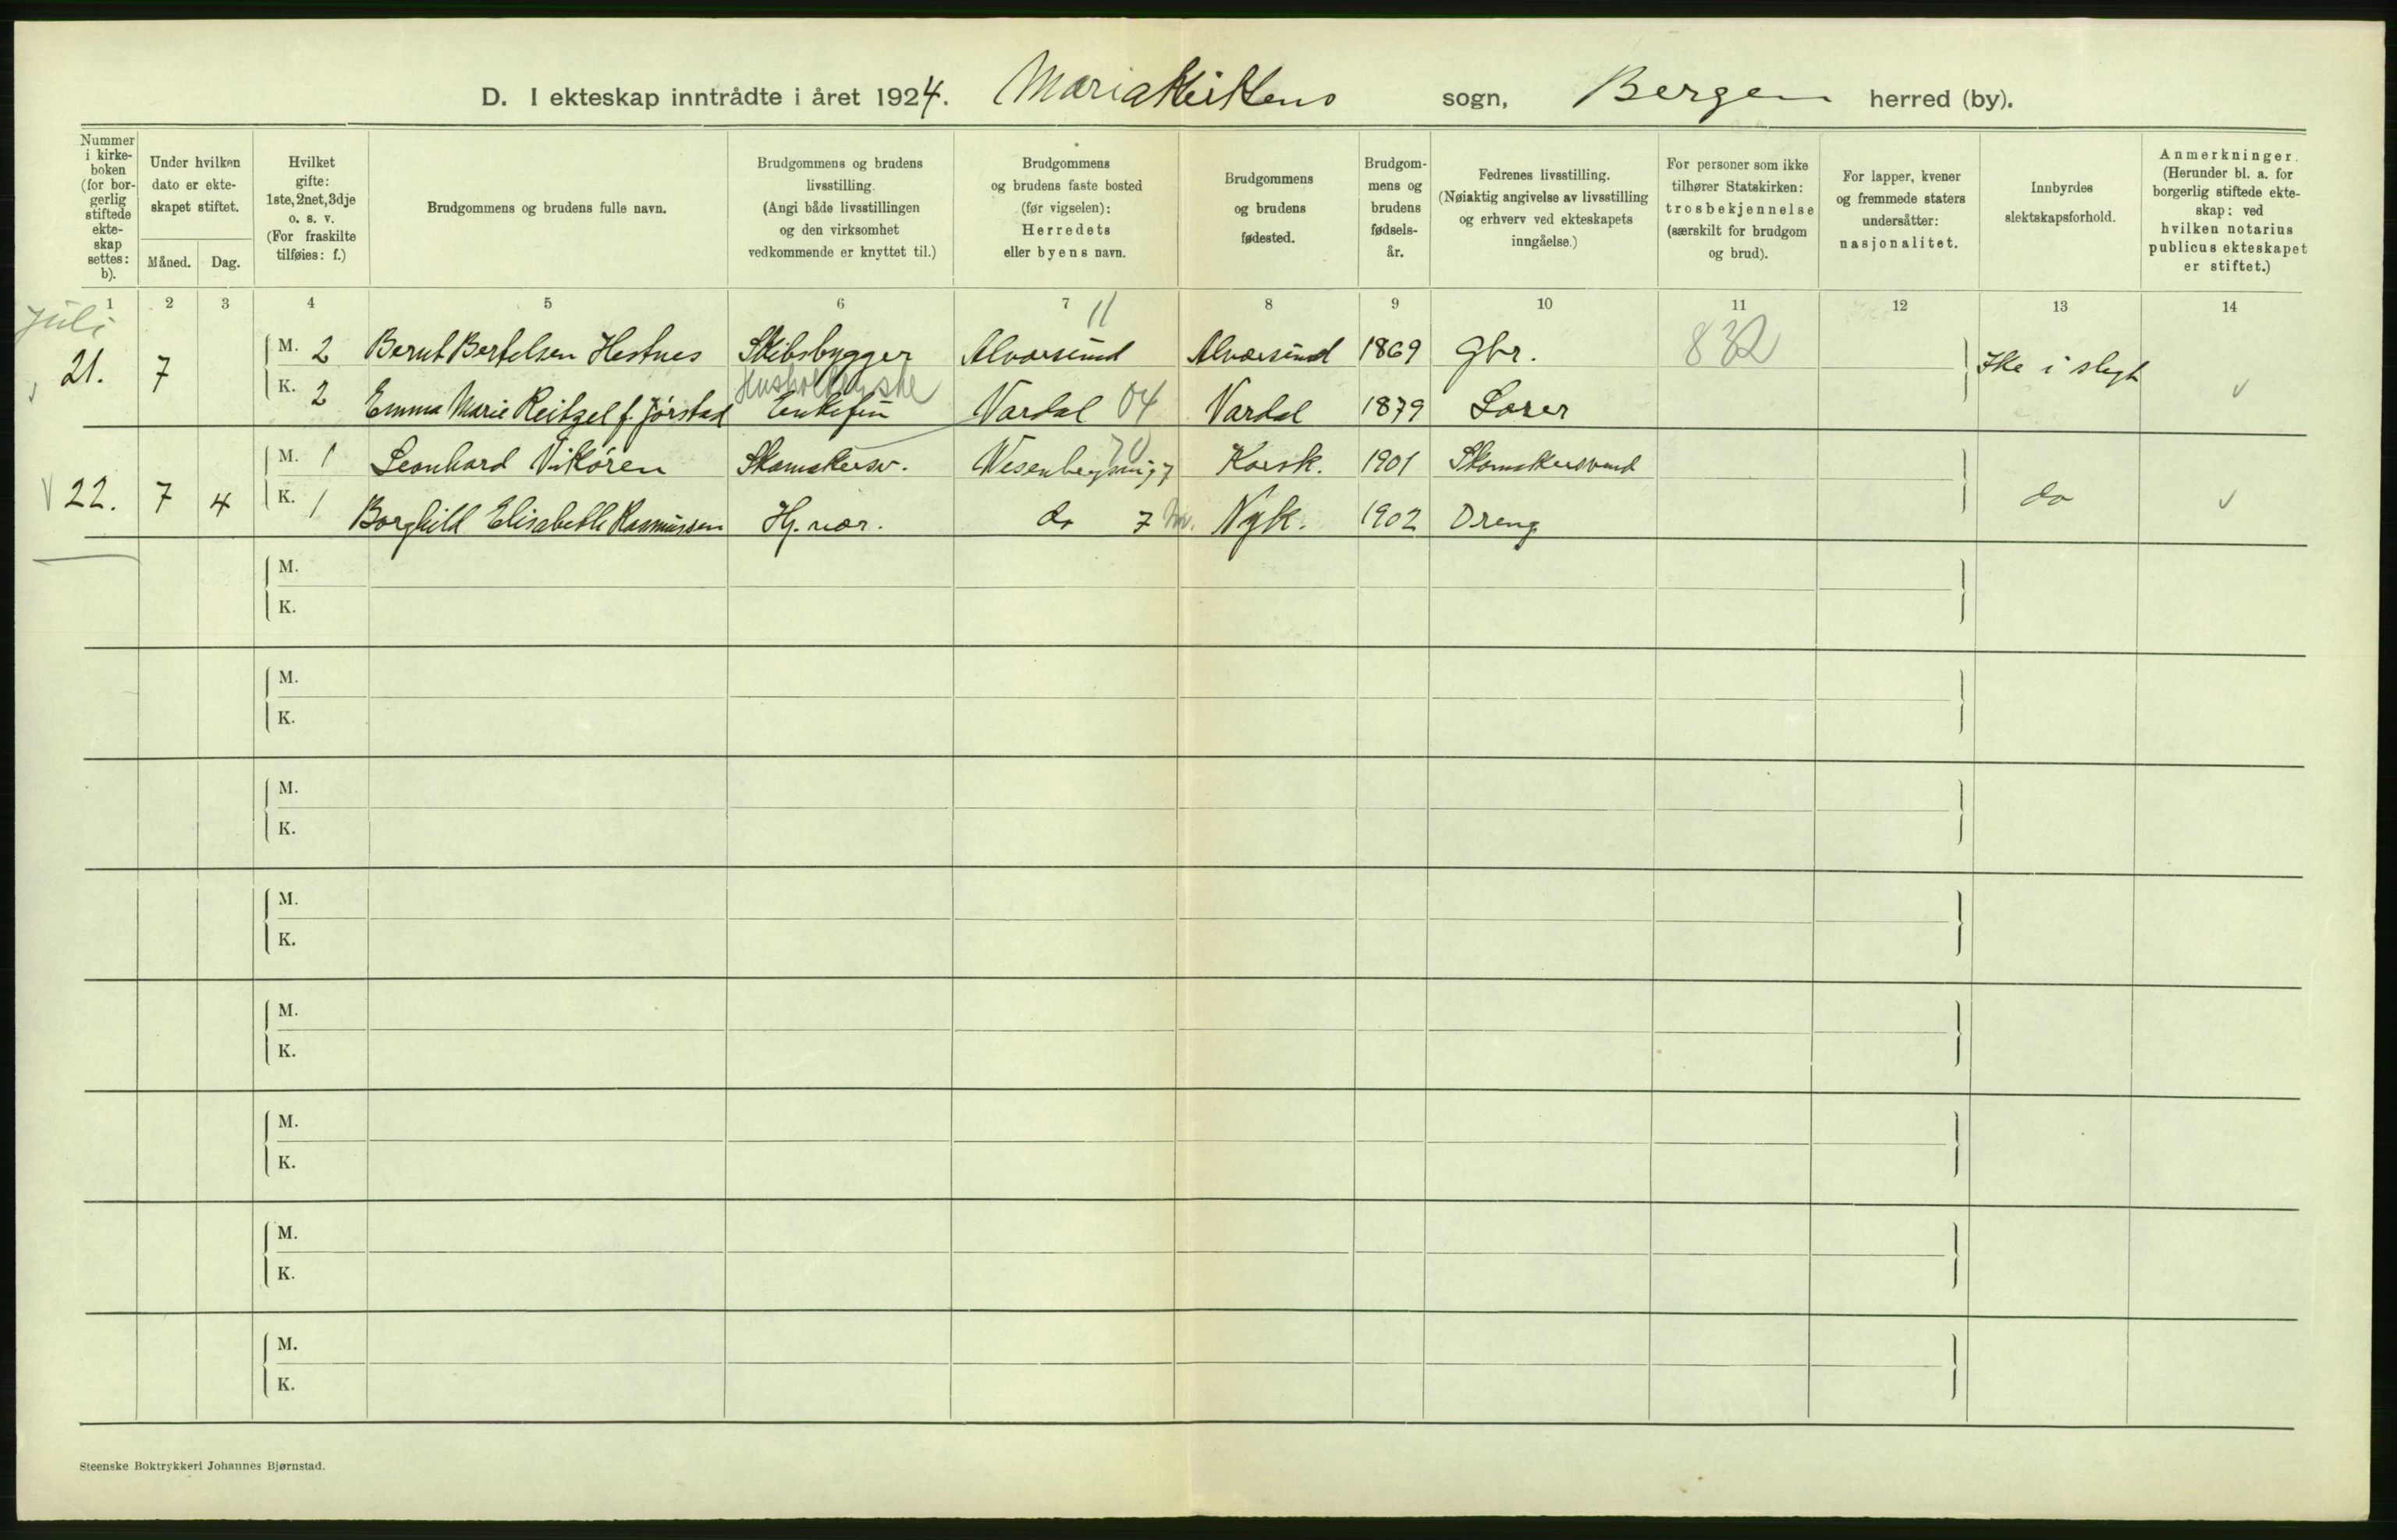 D. I ekteskap inntrådte i året 1924. Mariakirkens sogn, Bergen herred (by).
Nummer i kirke-boken (for bor-gerlig stiftede ekte-skap settes: b).
Under hvilken dato er ekte-skapet stiftet.
Måned. Dag.
Hvilket gifte: 1ste, 2net, 3dje o. s. v. (For fraskilte tilføies: f.)
Brudgommens og brudens fulle navn.
Brudgommens og brudens livsstilling. (Angi både livsstillingen og den virksomhet vedkommende er knyttet til.)
Brudgommens og brudens faste bosted (før vigselen): Herredets eller byens navn.
Brudgommens og brudens fødested.
Brudgom-mens og brudens fødsels-år.
Fedrenes livsstilling. (Nøiaktig angivelse av livsstilling og erhverv ved ekteskapets inngåelse.)
For personer som ikke tilhører Statskirken: trosbekjennelse (særskilt for brudgom og brud).
For lapper, kvener og fremmede staters undersåtter: nasjonalitet.
Innbyrdes slektskapsforhold.
Anmerkninger. (Herunder bl. a. for borgerlig stiftede ekte-skap: ved hvilken notarius publicus ekteskapet er stiftet.)
1 2 3 4 5 6 7 8 9 10 11 12 13 14
Juli
11
21. 7 M. 2 Bernt Bertelsen Hestnes Skibsbygger Alversund Alversund 1869 Gbr. 832 Ikke i slegt
Husholderske
K. 2 Emma Marie Reitzel f. Jørstad Enkefru Vardal 04 Vardal 1879 Lærer
22. 7 4 M. 1 Leonhard Vikören Skomakersv. Wesenbergsmug 7 Korsk. 1901 Skomakersvend do
K. 1 Borghild Elisabeth Rasmussen Hj. vær. do 7 Nyk. 1902 Dreng
M.
K.
M.
K.
M.
K.
M.
K.
M.
K.
M.
K.
M.
K.
M.
K.
Steenske Boktrykkeri Johannes Bjørnstad.